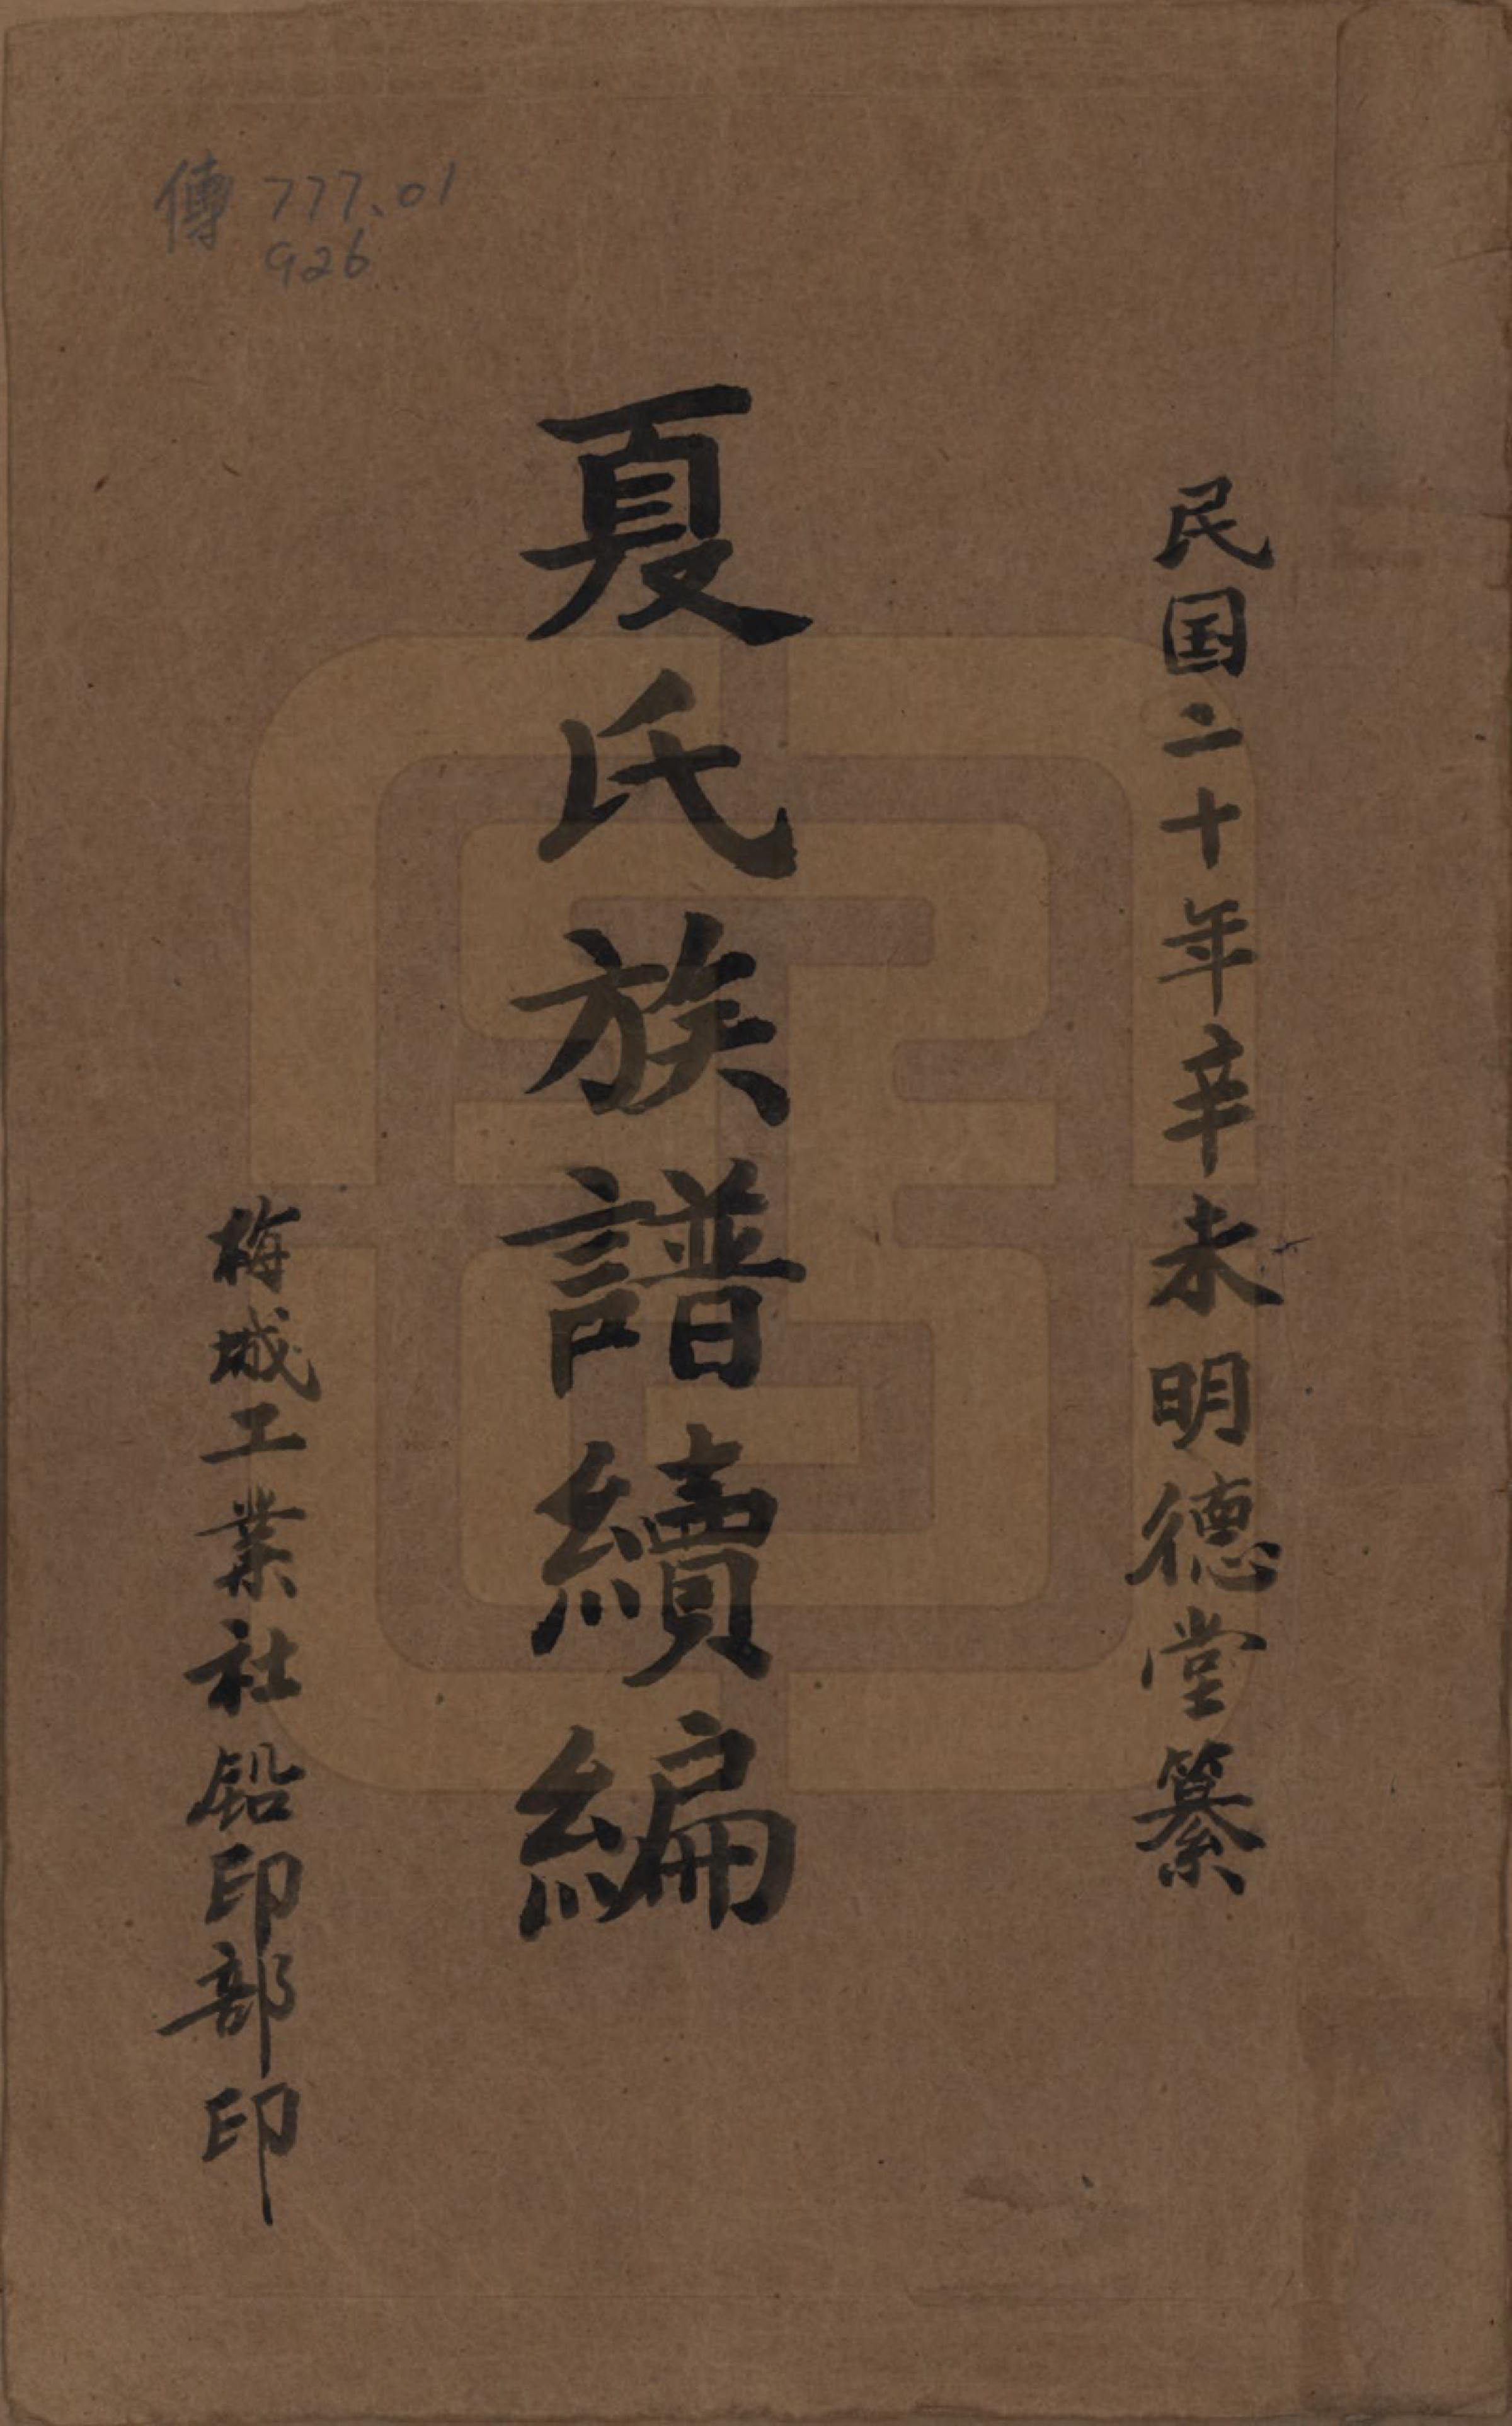 民国二十年辛未明德堂纂
夏氏族譜續編
梅城工業社鉛印部印
傳 777.01
926